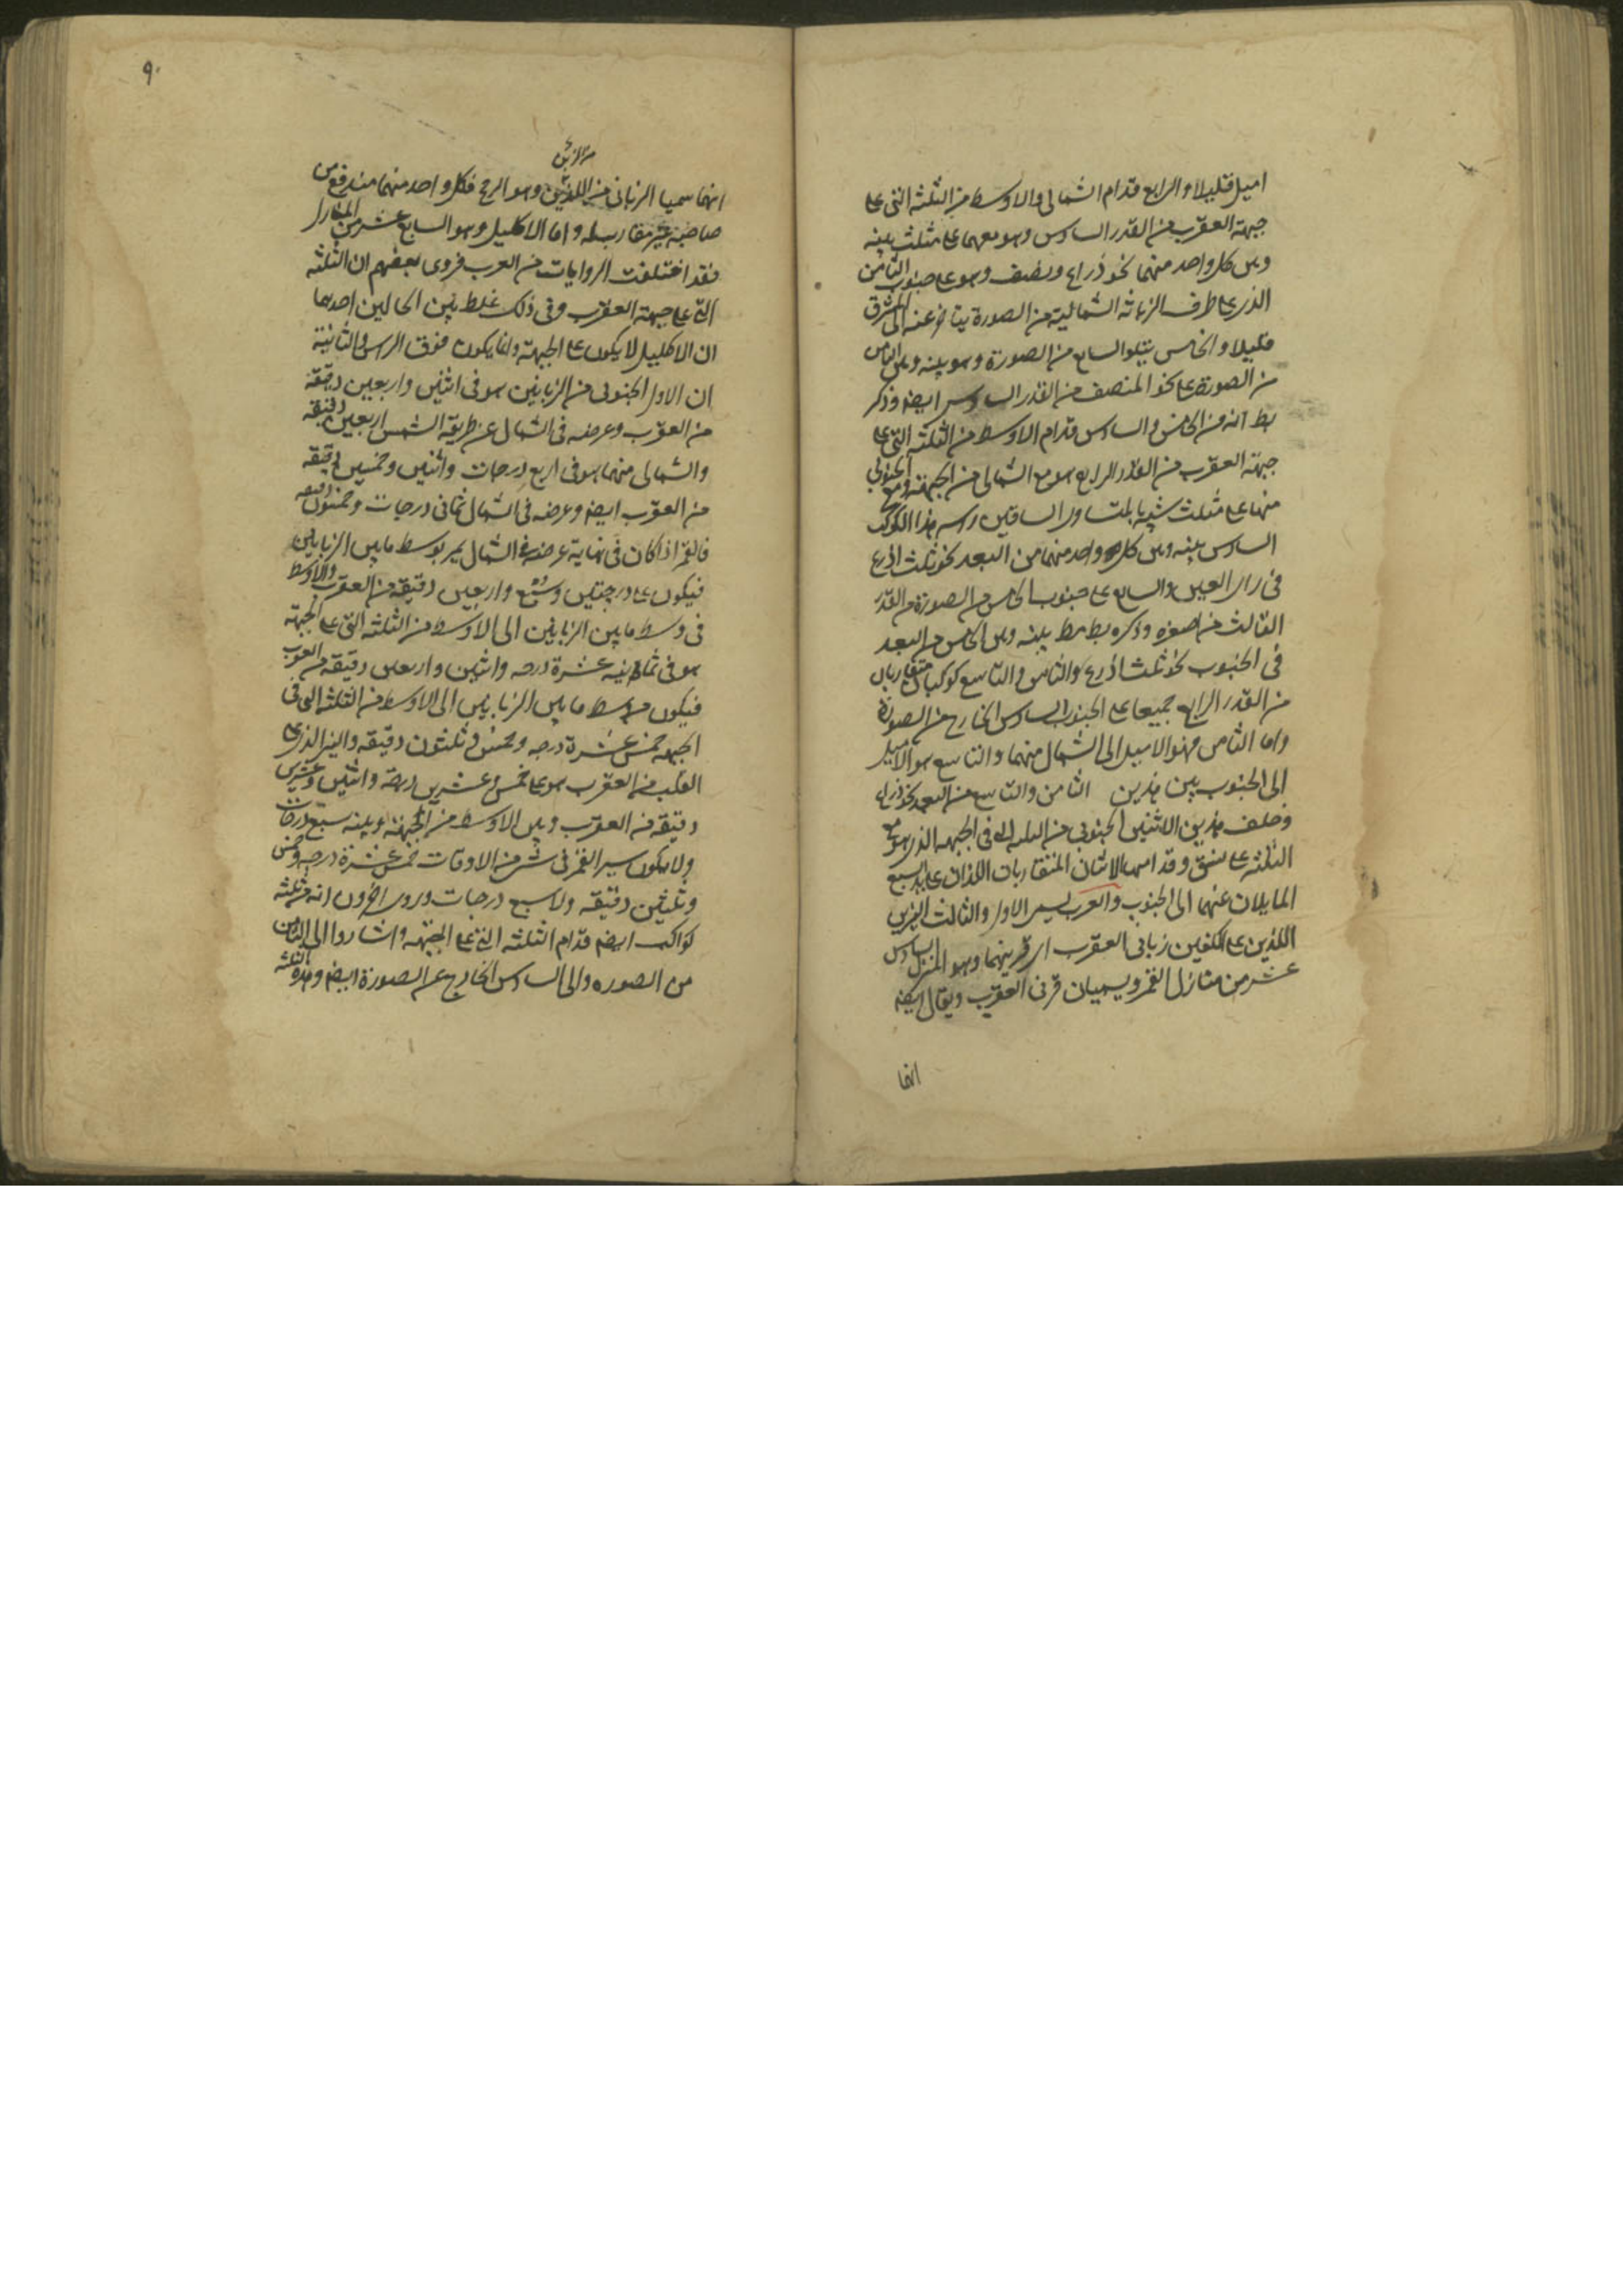 اميل قليلا والرابع قدام الشمالى والاوسط من الثلثه التى على
جبهة العقرب من القدر السادس وهو معهما على مثلث بينه
وبين كل واحد منهما نحو ذراع ونصف وهو على جنوب الثامن
الذى على طرف الزبانه الشماليه من الصورة يتاخر عنه الى المشرق
قليلا والخامس يتلو السابع من الصورة وهو بينه وبين الثامن
من الصورة على نحو المنصف من القدر السادس ايضا وذكر
بط انه من الخامس والسادس قدام الاوسط من الثلثه التى على
جبهة العقرب من القدر الرابع هو مع الشمالى من الجبهة ومع الجنوبى
منها على مثلث شبيه بالمتساوى الساقين راسه هذا الكوكب
السادس بينه وبين كل واحد منهما من البعد نحو ثلث اذرع
فى راى العين والسابع على جنوب الخامس من الصورة من القدر
الثالث من اصغره وذكره بط مط بينه وبين الخامس من البعد
فى الجنوب نحو ثلث اذرع والثامن والتاسع كوكبان متقاربان
من القدر الرابع جميعا على الجنوب السادس الخارج من الصورة
واما الثامن فهو الاميل الى الشمال منهما والتاسع هو الاميل
الى الجنوب بين هذين الثامن والتاسع من البعد نحو ذراع
وخلف هذين الاثنين الجنوبى من الثلثه التى فى الجبهه الذى هو مع
الثلثه على نسق وقدامهما الاثنان المتقاربان اللذان على
المايلان عنهما الى الجنوب والعرب يسمى الاول والثالث النيرين
اللذين على الكفين زبانى العقرب اى قرنيها وهو المنزل السادس
عشر من منازل القمر ويسميان قرنى العقرب ويقال ايضا
انما
٩٠
من الزبن
انما سميا الزبانى من اللذين وهو الدفع فكل واحد منهما مندفع من
صاحبه غير مقاربطه واما الاكليل وهو السابع عشر من المنازل
فقد اختلفت الروايات من العرب فروى بعضهم ان الثلثه
التى على جبهة العقرب وفى ذلك غلط بين الحالين احدهما
ان الاكليل لا يكون على الجبهة وانما يكون فوق الراس والثانية
ان الاول الجنوبى من الزبانين هو فى اثنين واربعين دقيقة
من العقرب وعرضه فى الشمال عن طريقة الشمس اربعين دقيقه
والشمالى منهما هو فى اربع درجات واثنين وخمسين دقيقه
من العقرب ايضا وعرضه فى الشمال ثمانى درجات وخمسون دقيقه
فالقمر اذا كان فى نهاية عرضه فى الشمال يمر بوسط ما بين الزبانين
فيكون على درجتين وسبع واربعين دقيقه من العقرب والاوسط
فى وسط ما بين الزبانين الى الاوسط من الثلثه التى على الجبهة
هو فى ثمانيه عشرة درجه واثنين واربعين دقيقه من العقرب
فيكون من وسط ما بين الزبانين الى الاوسط من الثلثه التى فى
الجبهه خمس عشرة درجه وخمس وثلثون دقيقه والنير الذى على
القلب من العقرب هو على خمس وعشرين درجة واثنين وعشرين
دقيقه من العقرب وبين الاوسط من الجبهة وبينه سبع درجات
ولا يكون سير القمر فى شى من الاوقات خمس عشرة درجه وخمس
وثلثين دقيقه ولا سبع درجات وروى اخرون انه ثلثه
كواكب ايضا قدام الثلثه التى على الجبهه واشاروا الى الثامن
من الصوره والى السادس الخارج عن الصورة ايضا وهذه الثلثه